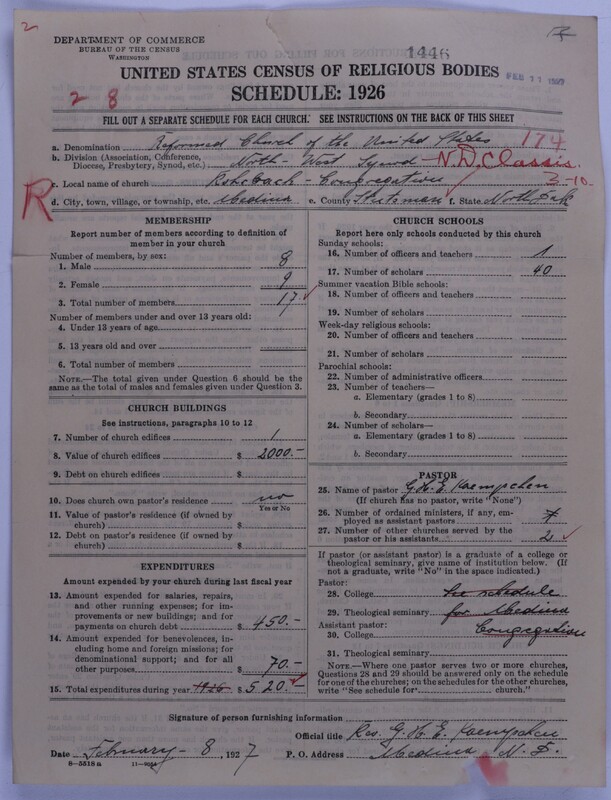 2
DEPARTMENT OF COMMERCE
BUREAU OF THE CENSUS
WASHINGTON
1446
UNITED STATES CENSUS OF RELIGIOUS BODIES
FEB 11 1927
SCHEDULE: 1926
2 8
FILL OUT A SEPARATE SCHEDULE FOR EACH CHURCH. SEE INSTRUCTIONS ON THE BACK OF THIS SHEET
a. Denomination Reformed Church of the United States 174
b. Division (Association, Conference, Diocese, Presbytery, Synod, etc.) North-West Synod - N.D. Classis.
c. Local name of church Rohrbach - Congregation 3-10.
R
d. City, town, village, or township, etc. Medina e. County Stutsman f. State North Dak
MEMBERSHIP
Report number of members according to definition of member in your church
Number of members, by sex:
1. Male 8
2. Female 9
3. Total number of members 17
Number of members under and over 13 years old:
4. Under 13 years of age
5. 13 years old and over
6. Total number of members
NOTE.—The total given under Question 6 should be the same as the total of males and females given under Question 3.
CHURCH BUILDINGS
See instructions, paragraphs 10 to 12
7. Number of church edifices 1
8. Value of church edifices $ 2000.-
9. Debt on church edifices $
10. Does church own pastor's residence no
Yes or No
11. Value of pastor's residence (if owned by church) $
12. Debt on pastor's residence (if owned by church) $
EXPENDITURES
Amount expended by your church during last fiscal year
13. Amount expended for salaries, repairs, and other running expenses; for improvements or new buildings; and for payments on church debt $ 450.-
14. Amount expended for benevolences, including home and foreign missions; for denominational support; and for all other purposes $ 70.-
15. Total expenditures during year 1926 $ 520.-
CHURCH SCHOOLS
Report here only schools conducted by this church
Sunday schools:
16. Number of officers and teachers 1
17. Number of scholars 40
Summer vacation Bible schools:
18. Number of officers and teachers
19. Number of scholars
Week-day religious schools:
20. Number of officers and teachers
21. Number of scholars
Parochial schools:
22. Number of administrative officers
23. Number of teachers—
a. Elementary (grades 1 to 8)
b. Secondary
24. Number of scholars—
a. Elementary (grades 1 to 8)
b. Secondary
PASTOR
25. Name of pastor G. H. E. Kaempchen
(If church has no pastor, write "None")
26. Number of ordained ministers, if any, employed as assistant pastors
27. Number of other churches served by the pastor or his assistants 2
If pastor (or assistant pastor) is a graduate of a college or theological seminary, give name of institution below. (If not a graduate, write "No" in the space indicated.)
Pastor:
28. College See schedule
29. Theological seminary for Medina
Assistant pastor:
30. College Congregation
31. Theological seminary
NOTE.—Where one pastor serves two or more churches, Questions 28 and 29 should be answered only on the schedule for one of the churches; on the schedules for the other churches, write "See schedule for church."
Signature of person furnishing information
Official title Rev. G. H. E. Kaempchen
Date February - 8, 1927 P. O. Address Medina N. D.
8—5518 a